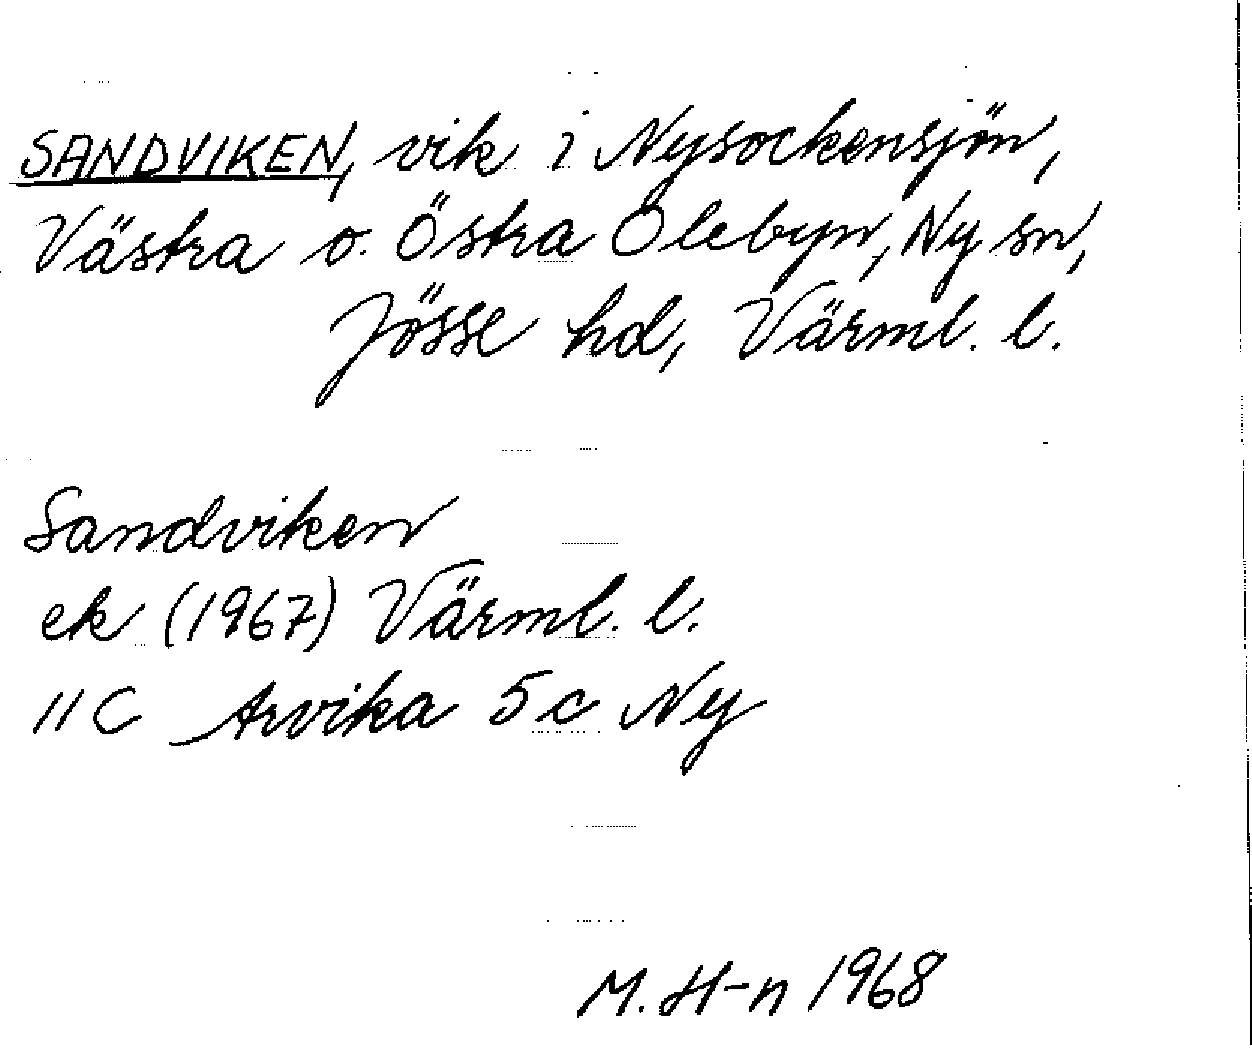 SANDVIKEN, vik i Nysockensjön,
Västra o. Östra Olebyn, Ny sn,
Jösse hd, Värml. l.
Sandviken
ek (1967) Värml. l.
11 C Arvika 5 c Ny
M. H-n 1968